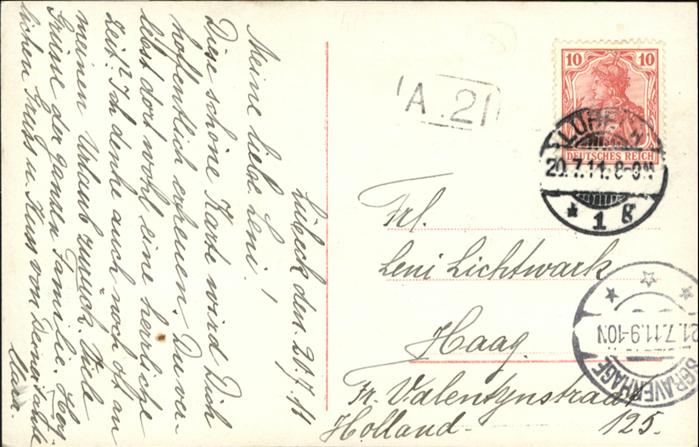 Lübeck den 20.7.11
Meine liebe Leni!
Diese schöne Karte wird Dich
hoffentlich erfreuen. Du ver-
lebst dort wohl eine herrliche
Zeit? Ich denke auch noch oft an
meinen Urlaub zurück. Viele
Grüsse der ganzen Familie. Herz-
lichen Gruss u. Kuss von Deiner Tante
A.21
10 10
DEUTSCHES REICH
LÜBECK
20.7.11. 8-9N
* 1 g
Frl.
Leni Lichtwark
Haag.
Fr. Valentynstraat
125.
Holland
'SGRAVENHAGE
21.7.11.9-10N